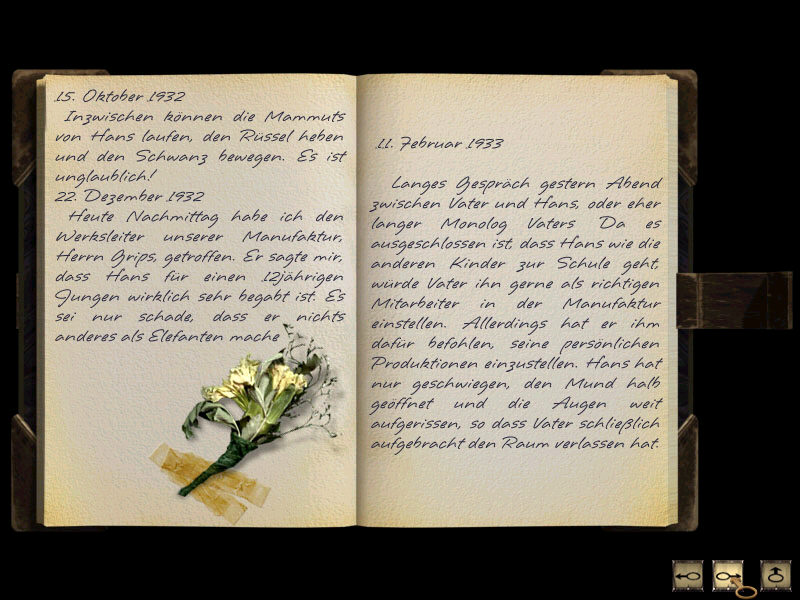 15. Oktober 1932
Inzwischen können die Mammuts
von Hans laufen, den Rüssel heben
und den Schwanz bewegen. Es ist
unglaublich!
22. Dezember 1932
Heute Nachmittag habe ich den
Werksleiter unserer Manufaktur,
Herrn Grips, getroffen. Er sagte mir,
dass Hans für einen 12jährigen
Jungen wirklich sehr begabt ist. Es
sei nur schade, dass er nichts
anderes als Elefanten mache
11. Februar 1933
Langes Gespräch gestern Abend
zwischen Vater und Hans, oder eher
langer Monolog Vaters Da es
ausgeschlossen ist, dass Hans wie die
anderen Kinder zur Schule geht,
würde Vater ihn gerne als richtigen
Mitarbeiter in der Manufaktur
einstellen. Allerdings hat er ihm
dafür befohlen, seine persönlichen
Produktionen einzustellen. Hans hat
nur geschwiegen, den Mund halb
geöffnet und die Augen weit
aufgerissen, so dass Vater schließlich
aufgebracht den Raum verlassen hat.